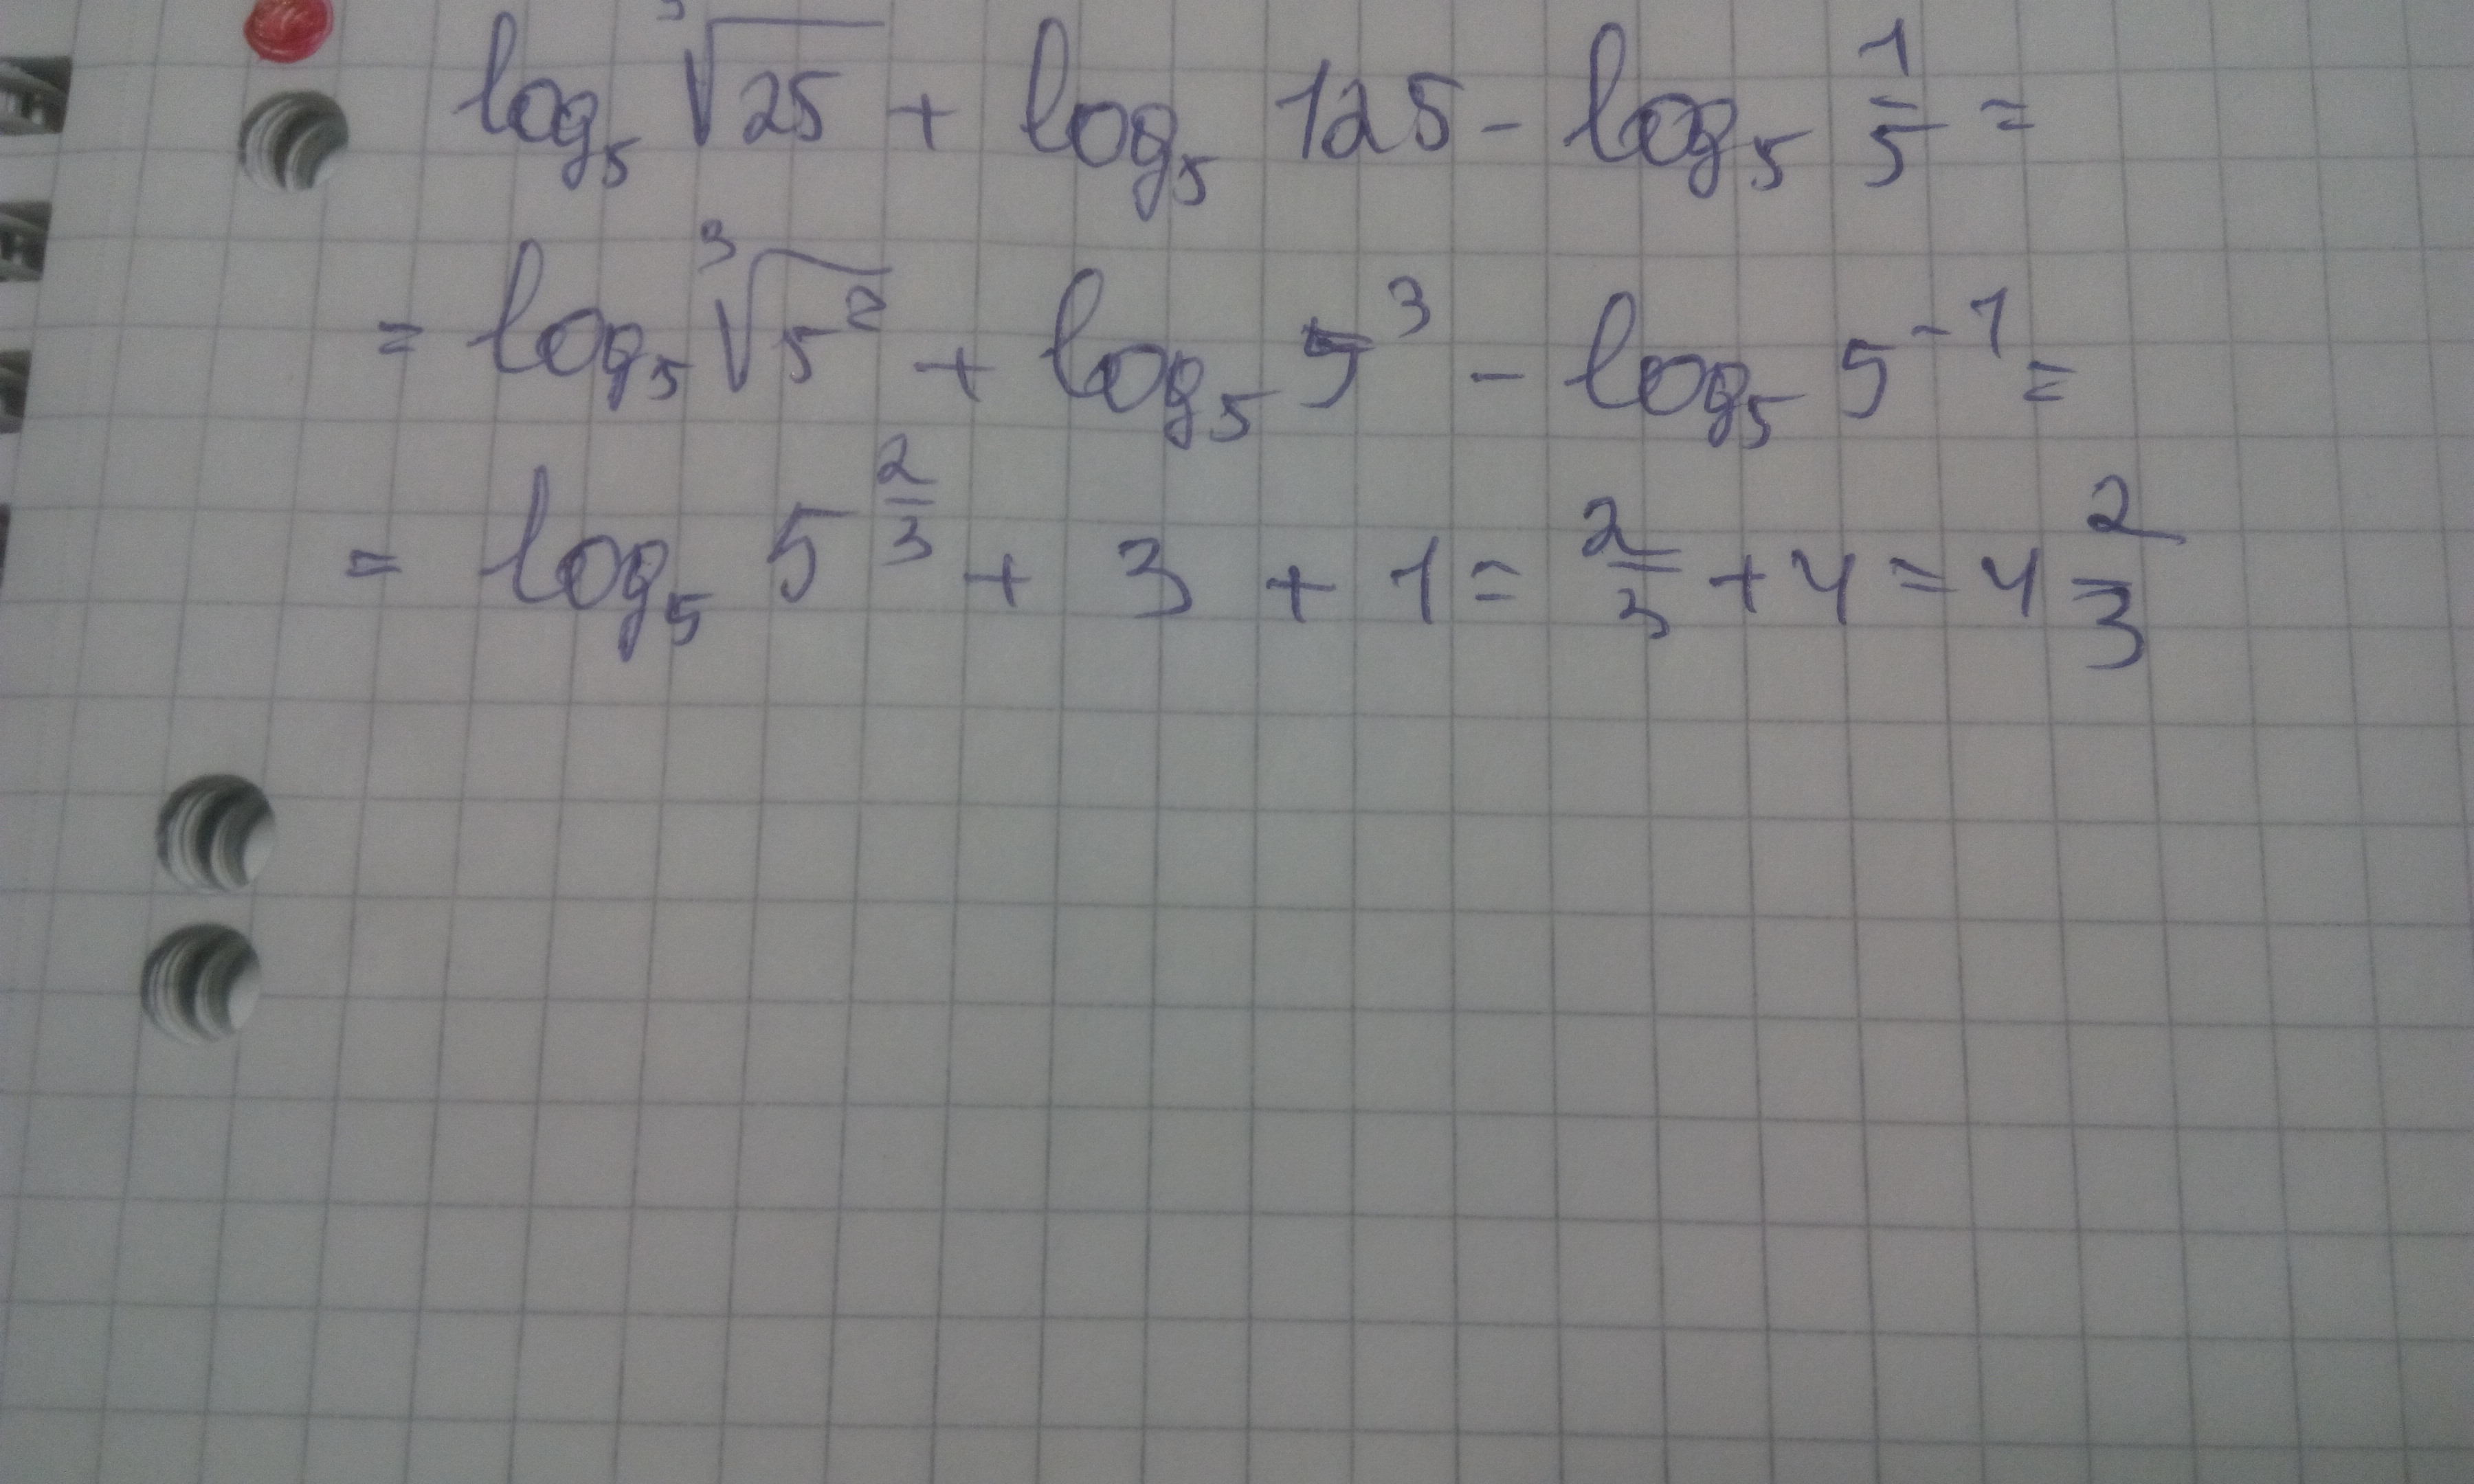 log₅ ³√25 + log₅ 125 - log₅ 1/5 =
= log₅ ³√5² + log₅ 5³ - log₅ 5⁻¹ =
= log₅ 5^(2/3) + 3 + 1 = 2/3 + 4 = 4 2/3